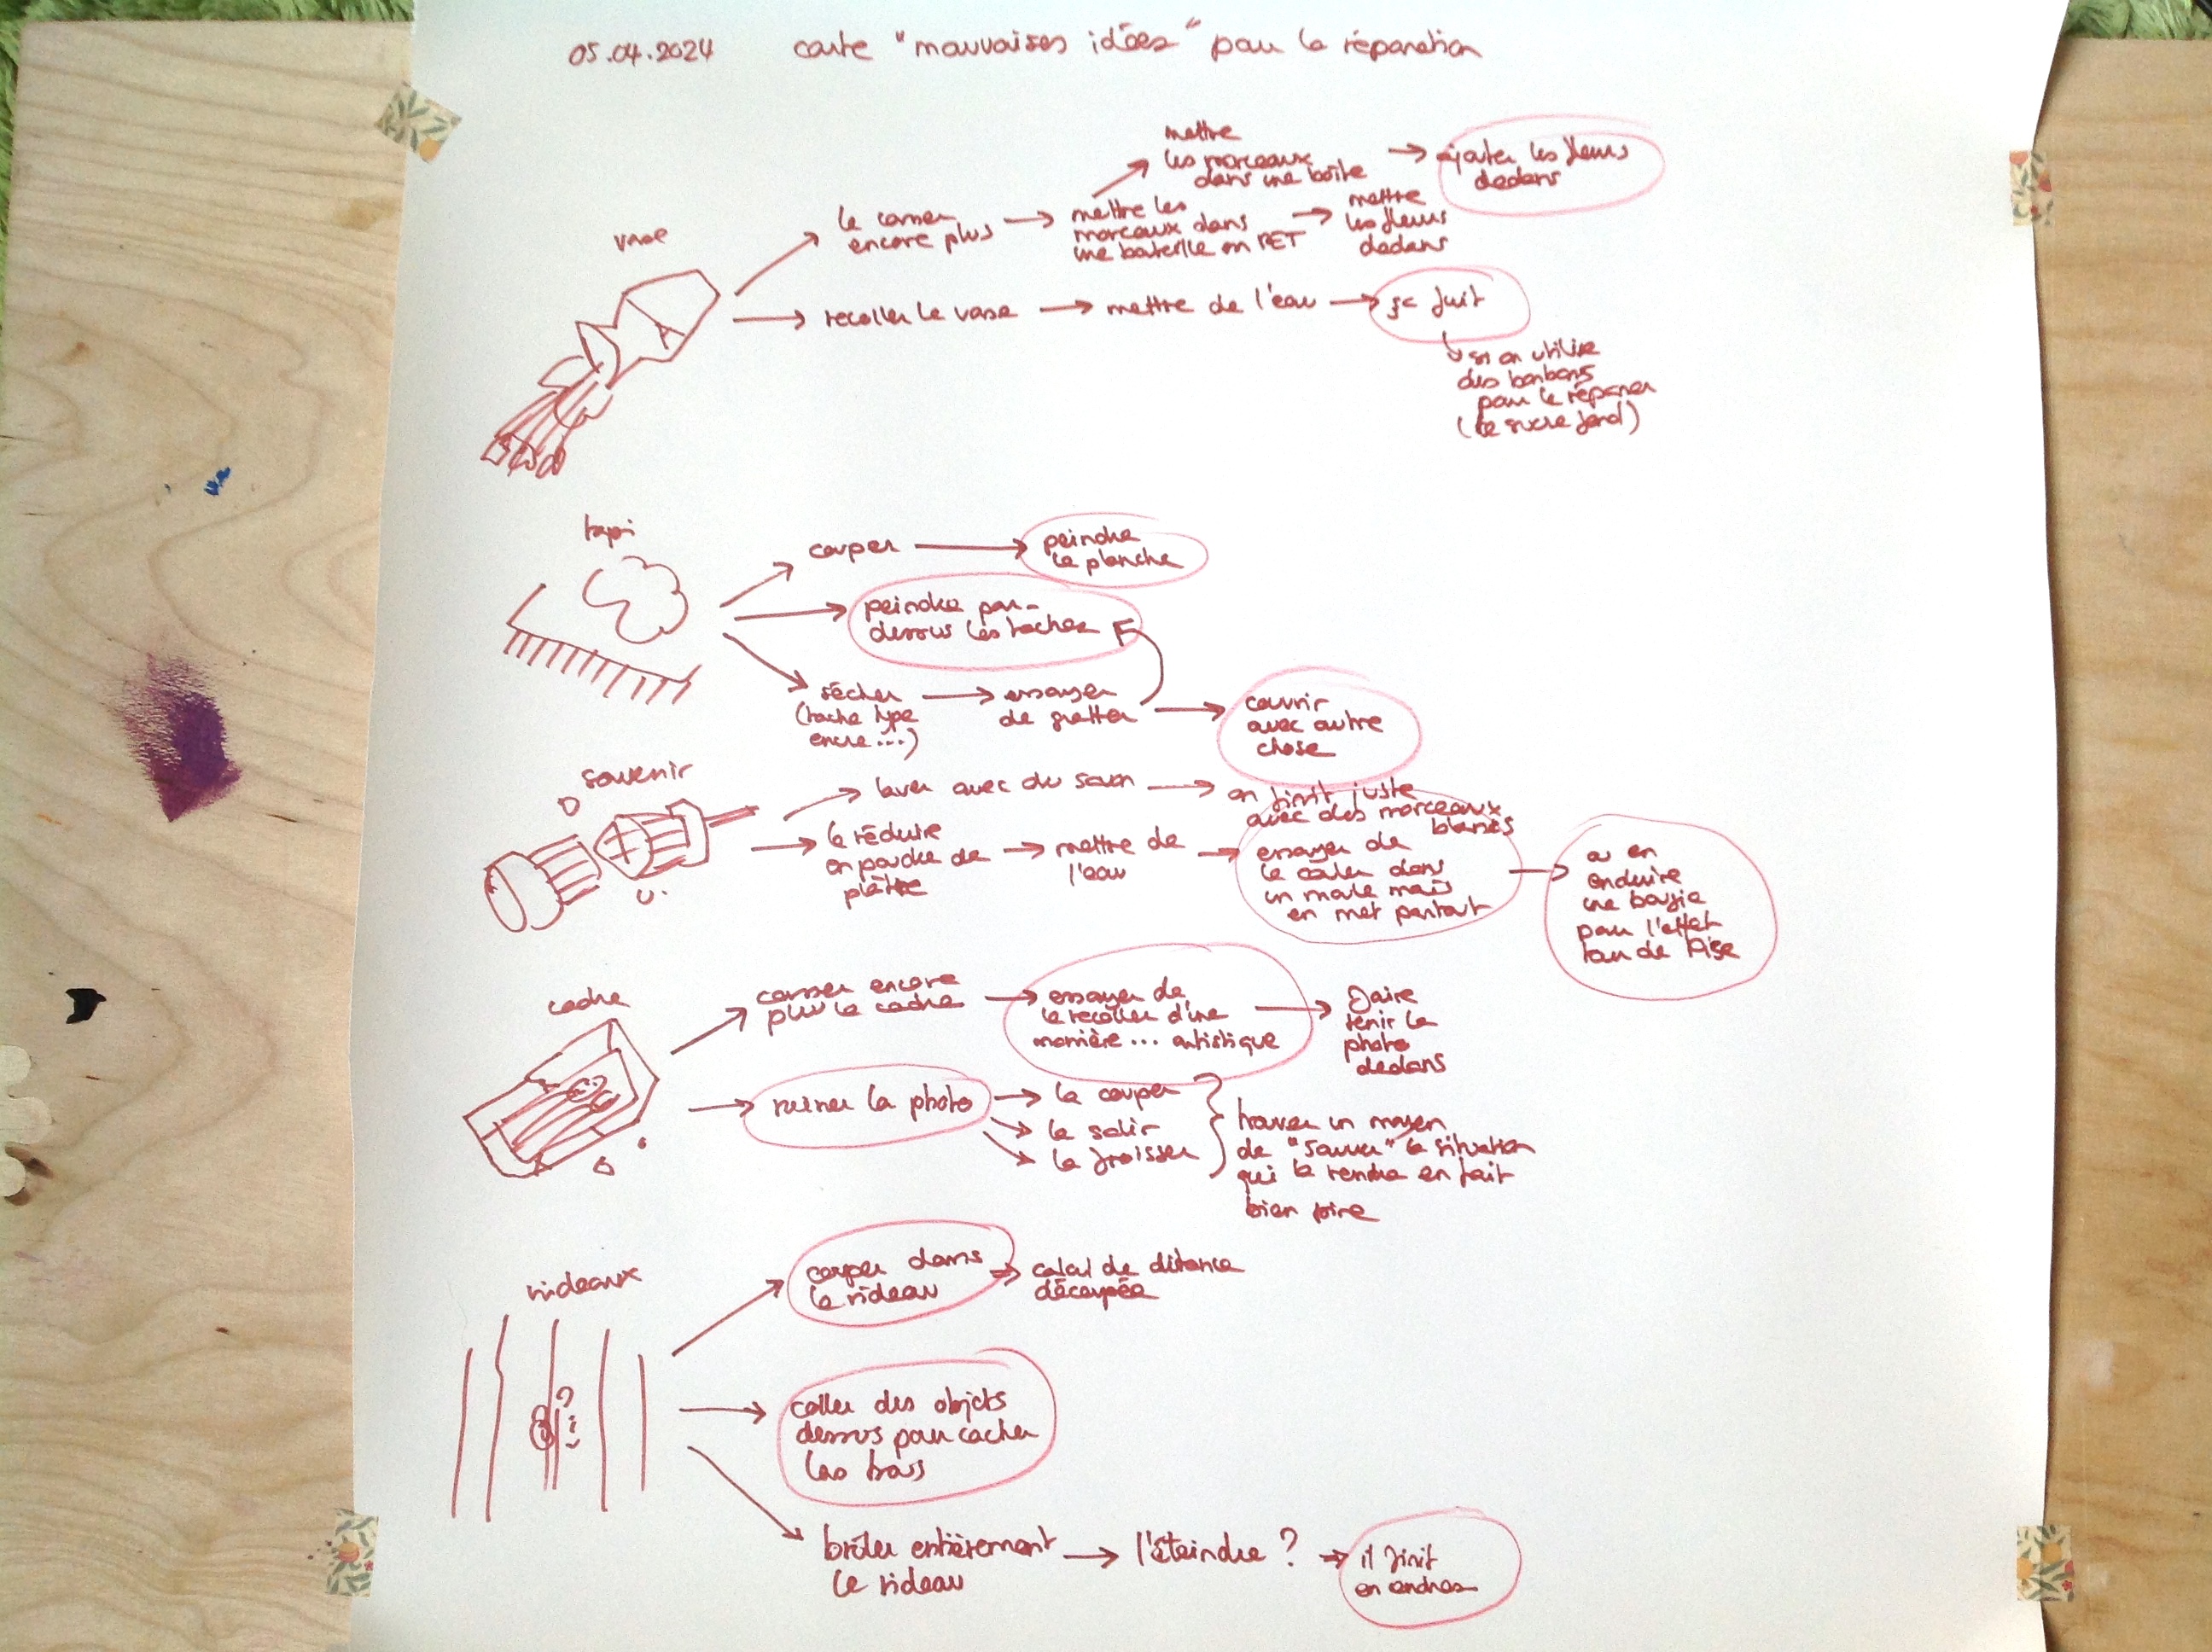 05.04.2024 carte "mauvaises idées" pour la réparation
vase
le casser
encore plus
mettre
les morceaux
dans une boîte
ajouter les fleurs
dedans
mettre les
morceaux dans
une bouteille en PET
mettre
les fleurs
dedans
recoller le vase
mettre de l'eau
ça fuit
si on utilise
des bonbons
pour le réparer
(le sucre fond)
tapi
couper
peindre
la planche
peindre par-
dessus les taches
sécher
(tache type
encre...)
essayer
de gratter
couvrir
avec autre
chose
souvenir
laver avec du savon
on finit juste
avec des morceaux
blancs
le réduire
en poudre de
plâtre
mettre de
l'eau
essayer de
le couler dans
un moule mais
en met partout
ou en
enduire
une bougie
pour l'effet
tour de Pise
cadre
casser encore
plus le cadre
essayer de
le recoller d'une
manière... artistique
faire
tenir la
photo
dedans
ruiner la photo
la couper
la salir
la froisser
trouver un moyen
de "sauver" la situation
qui la rendra en fait
bien pire
rideaux
couper dans
le rideau
calcul de distance
découpée
coller des objets
dessus pour cacher
les trous
brûler entièrement
le rideau
l'éteindre ?
il finit
en cendres